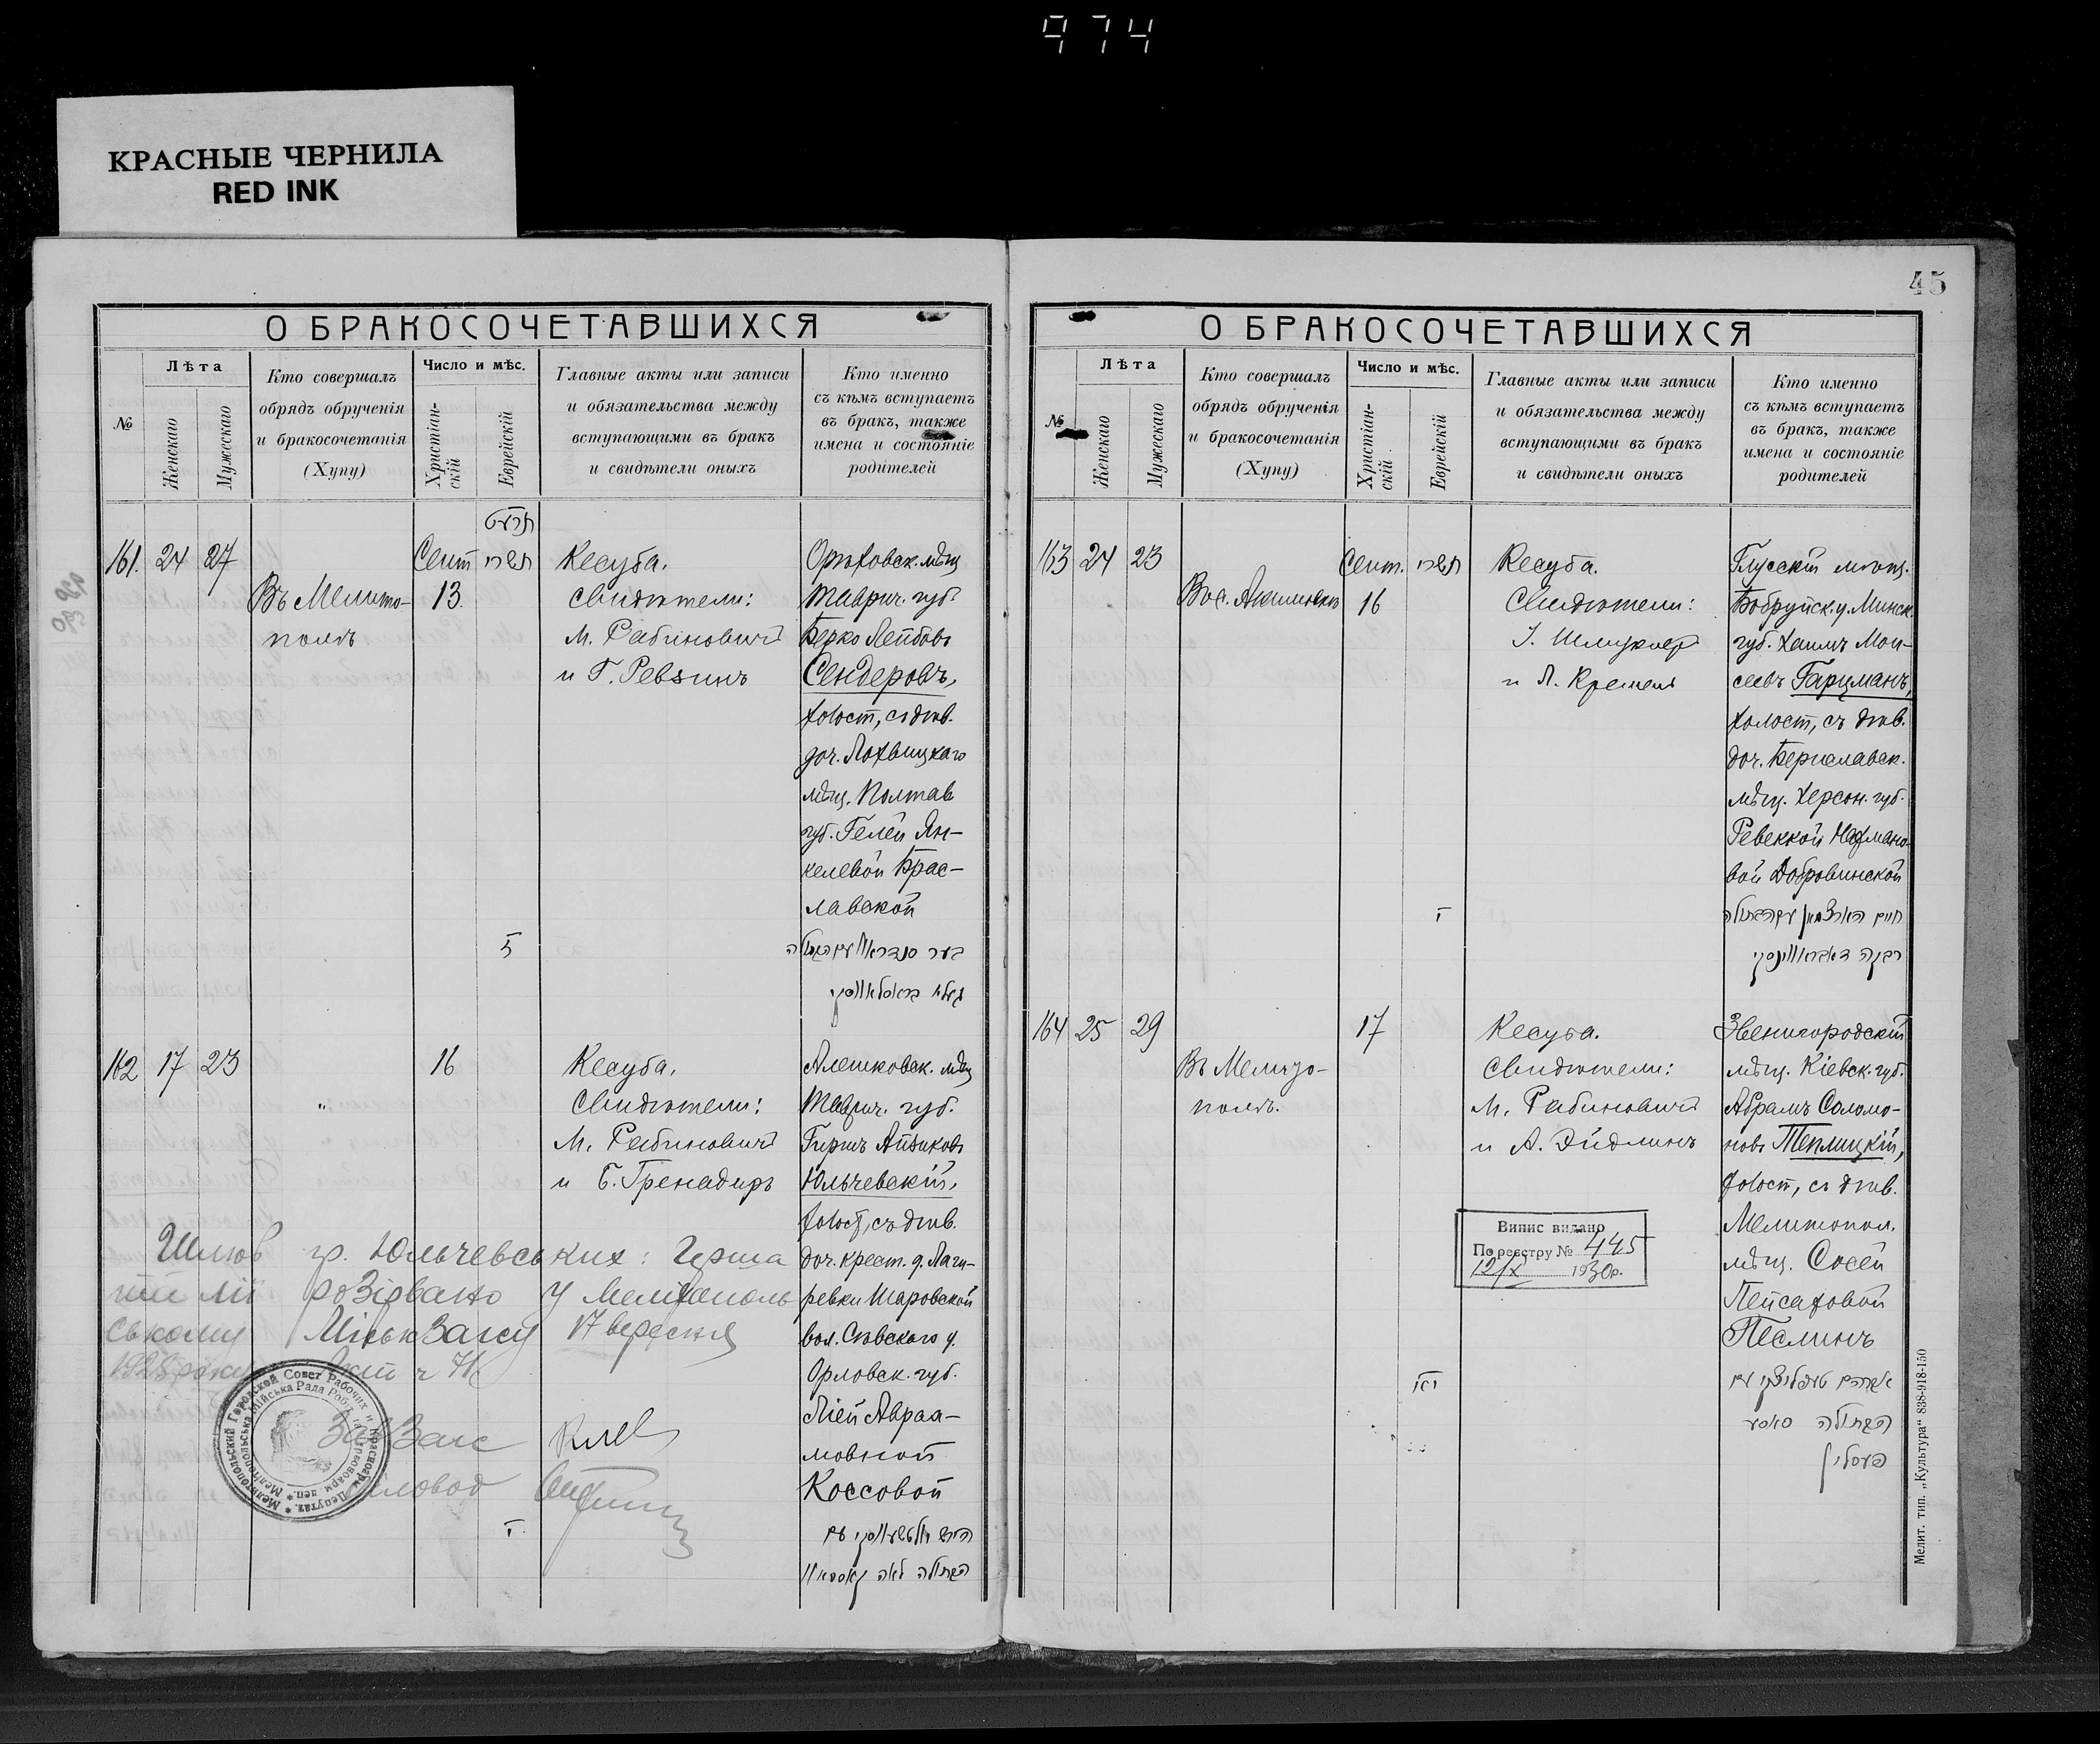 974
КРАСНЫЕ ЧЕРНИЛА
RED INK
О БРАКОСОЧЕТАВШИХСЯ
№
Лѣта
Женскаго
Мужескаго
Кто совершалъ
обрядъ обрученія
и бракосочетанія
(Хупу)
Число и мѣс.
Христіан-
скій
Еврейскій
Главные акты или записи
и обязательства между
вступающими въ бракъ
и свидѣтели оныхъ
Кто именно
съ кѣмъ вступаетъ
въ бракъ, также
имена и состояніе
родителей
161. 24 27
Въ Мелито-
полѣ
Сент תשרי
13.
Кесуба.
Свидѣтели:
М. Рабиновичъ
и Г. Ревзинъ
Орѣховск. мѣщ
Таврич. губ.
Берко Лейбовъ
Сендеровъ,
холост, съ дѣв.
доч. Лохвицкаго
мѣщ. Полтав
губ. Гелей Ян-
келевой Брас-
лавской
ה
162 17 23
"
16
Кесуба.
Свидѣтели:
М. Рабиновичъ
и Б. Гренадиръ
Алешковск. мѣщ
Таврич. губ.
Гиршъ Айзиковъ
Юльчевскій,
холост, съ дѣв.
доч. крест. д.
Шаровской
вол. Сѣвскаго у.
Орловск. губ.
Ліей Авраа-
мовной
Коссовой
הבתולה לאה
Шлюб гр. Юльчевських: Герша
Лії розірвано у Мелітополь
ському 17 вересня
1928 року Акт ч
Зав Загс
Діловод
Мелитопольский Городской Совет Рабочих и Красноарм. Депутат.
Мелітопольська Міська Рада Роб.
45
О БРАКОСОЧЕТАВШИХСЯ
№
Лѣта
Женскаго
Мужескаго
Кто совершалъ
обрядъ обрученія
и бракосочетанія
(Хупу)
Число и мѣс.
Христіан-
скій
Еврейскій
Главные акты или записи
и обязательства между
вступающими въ бракъ
и свидѣтели оныхъ
Кто именно
съ кѣмъ вступаетъ
въ бракъ, также
имена и состояніе
родителей
163 24 23
Въ с. Акимовкѣ
Сент. תשרי
16
Кесуба.
Свидѣтели:
и Л. Кремень
Глусскій мѣщ.
Бобруйск. у. Минск.
губ. Хаимъ Мои-
сеевъ Гарцманъ,
холост, съ дѣв.
доч. Бериславск.
мѣщ. Херсон. губ.
Ревеккой Нахмано-
вой Добровинской
חיים הארצמאן עם הבתולה
רבקה דאבראווינסקי
164 25 29
Въ Мелито-
полѣ.
17
Кесуба.
Свидѣтели:
М. Рабиновичъ
и А. Эйдлинъ
Звенигородскій
мѣщ. Кіевск. губ.
Абрамъ Соломо-
новъ Теплицкій,
холост, съ дѣв.
Мелитопол.
мѣщ. Сосей
Пейсаховой
Песлинъ
אברהם טעפליצקי עם
הבתולה סאסע
פעסלין
Випис видано
По реєстру № 445
12/X 1930р.
Мелит. тип. „Культура“ 838-918-150